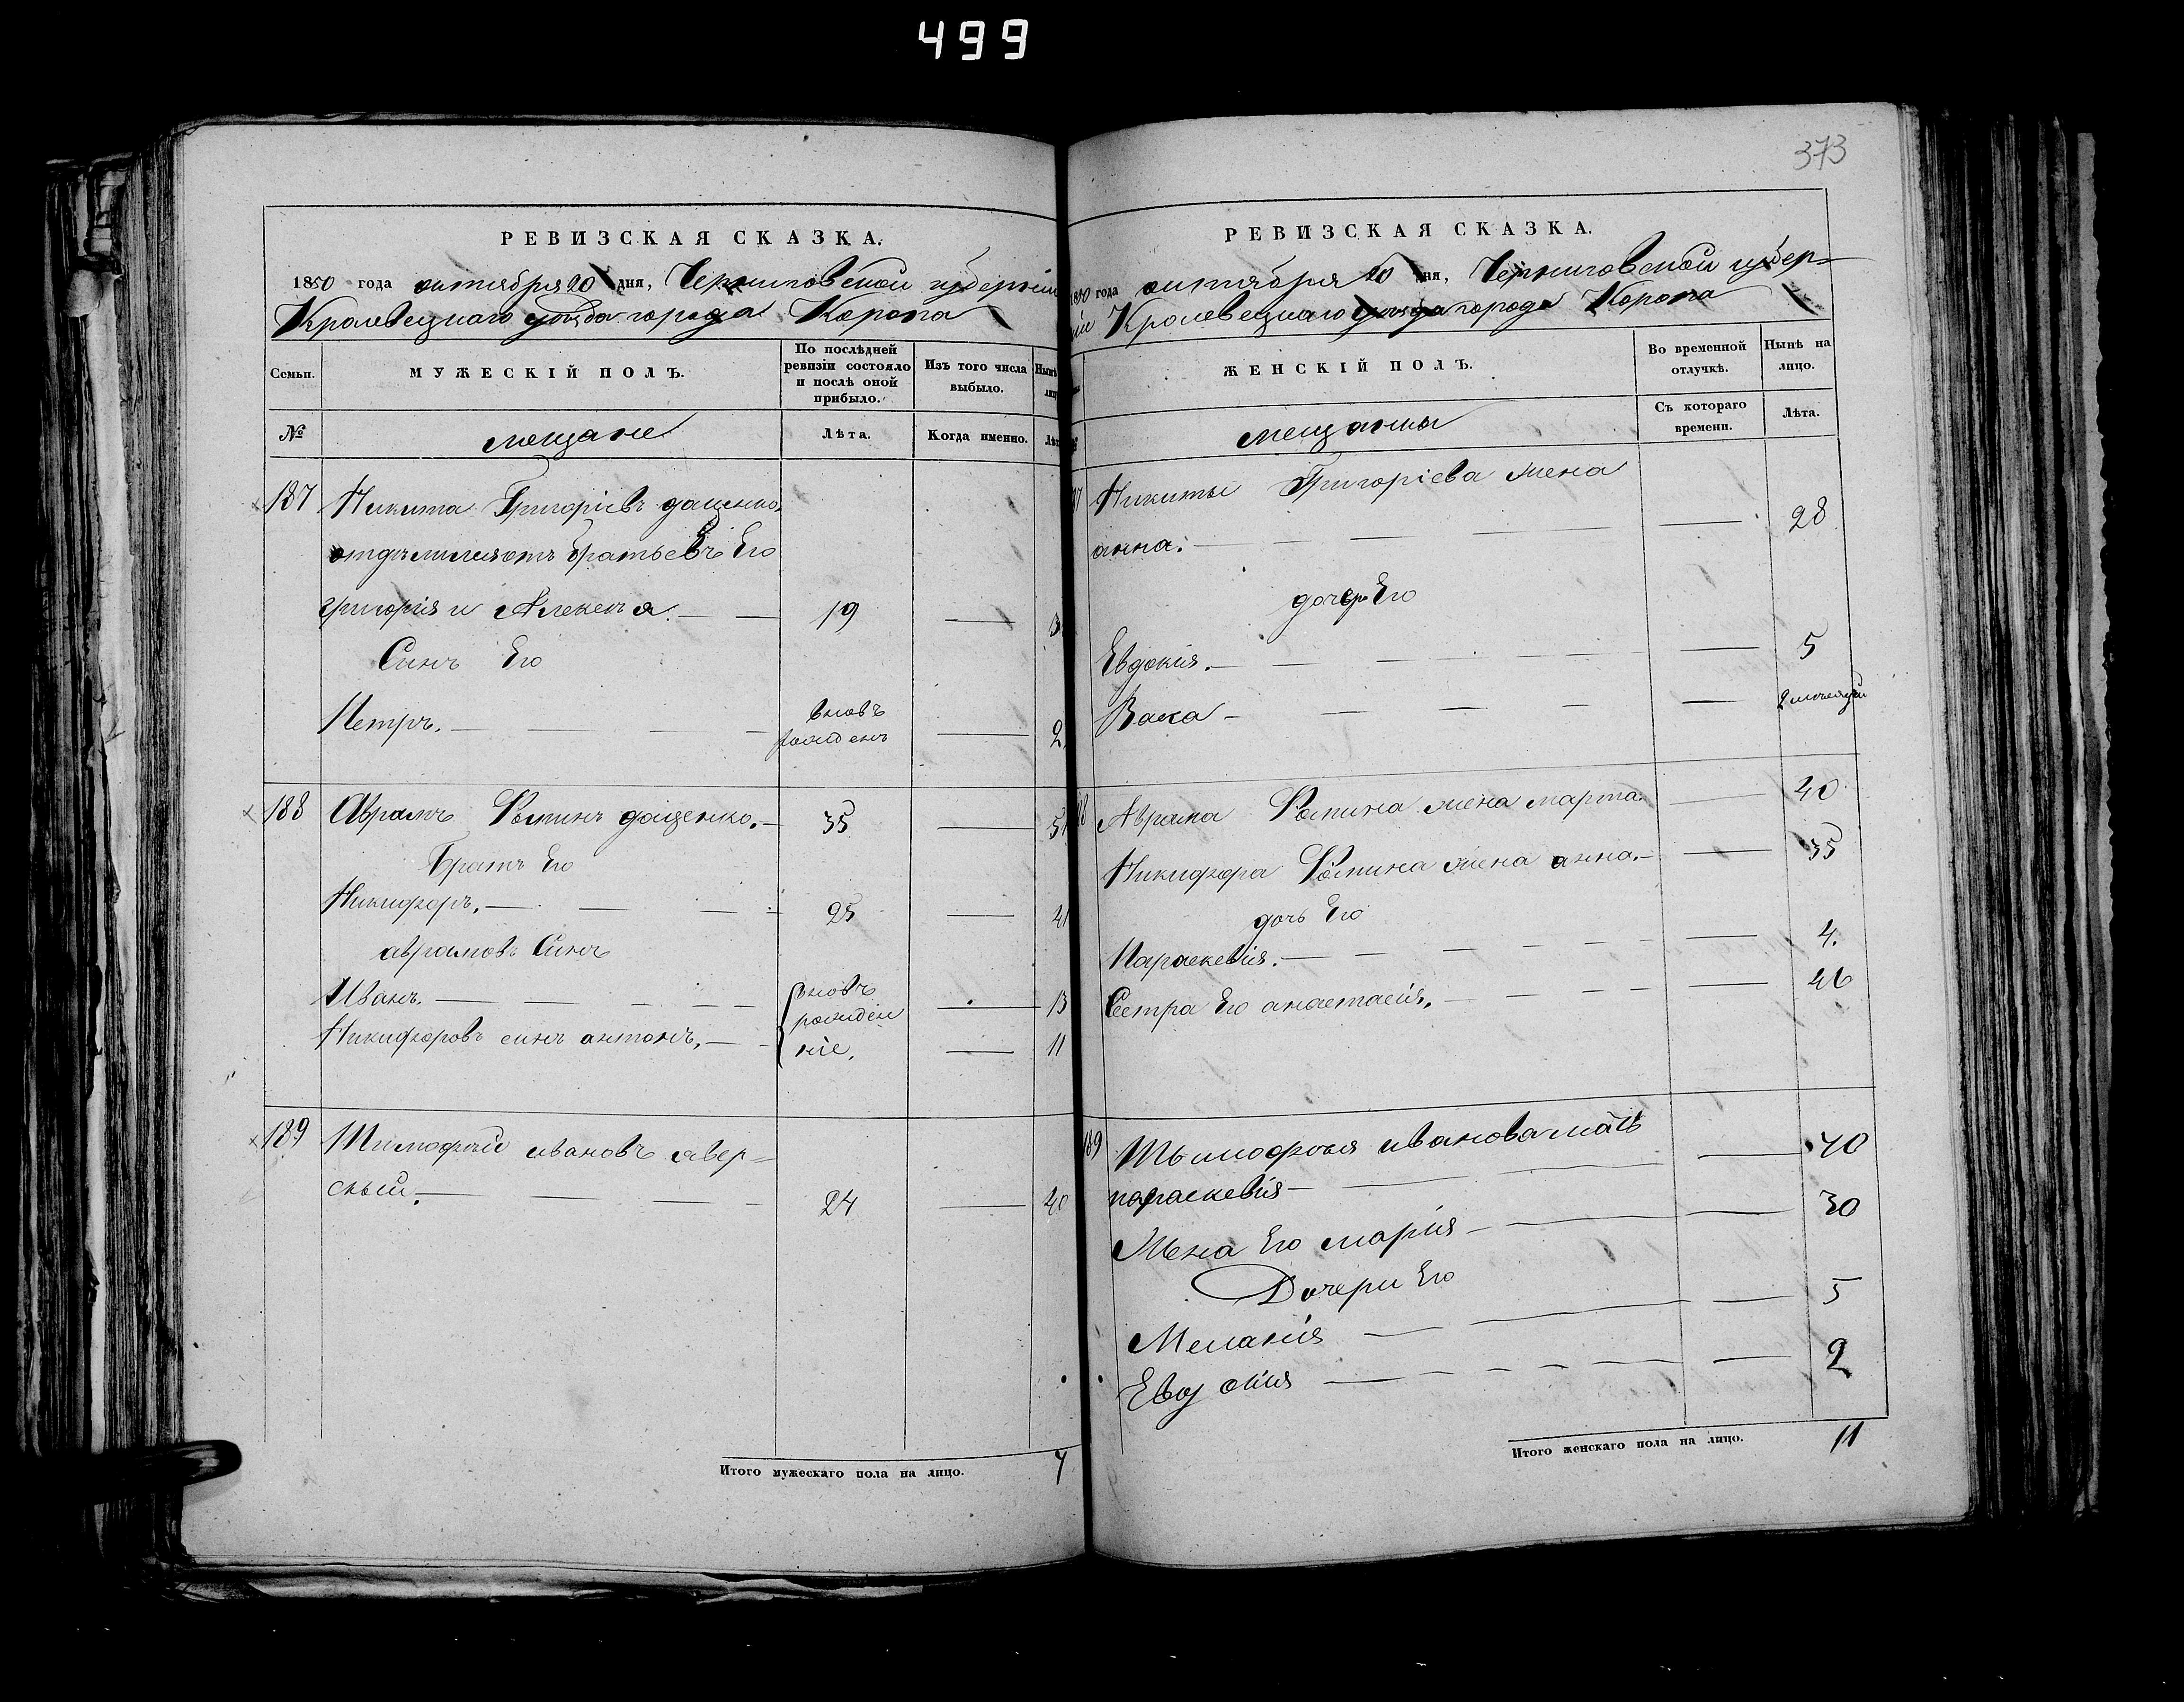 499
373
РЕВИЗСКАЯ СКАЗКА.
1850 года октября 20 дня, Черниговской губерніи
Кролевецкаго уѣзда города Коропа
Семьи.
МУЖЕСКІЙ ПОЛЪ.
По послѣдней ревизіи состояло и послѣ оной прибыло.
Изъ того числа выбыло.
№
мещане
Лѣта.
Когда именно.
187 Никита Григоріевъ дащенко
отдѣлился отъ братьевъ Его
григорія и Алексѣя. 19
Синъ Его
Петръ. вновь рожденъ 2
188 Аврамъ Фоминъ дащенко. 35
Братъ Его
Никифоръ. 25
аврамовъ Синъ
Иванъ. вновь 13
рожден
Никифоровъ синъ антонъ. ніе. 11
189 Тимофѣй ивановъ явер-
скый. 24 40
Итого мужескаго пола на лицо. 7
РЕВИЗСКАЯ СКАЗКА.
1850 года октября 20 дня, Черниговской губер-
ніи Кролевецкаго уѣзда города Коропа
ЖЕНСКІЙ ПОЛЪ.
Во временной отлучкѣ.
Нынѣ на лицо.
мещанки
Съ котораго времени.
Лѣта.
Никиты Григоріева жена
анна. 28
дочери Его
Евдокія. 5
Васа 2
Аврама Фомина жена марта. 40
Никифора Фомина жена анна. 35
дочь Его
Параскевія. 4.
Сестра Его анастасія. 46
189 Тымофѣя иванова мать
параскевія 70
Жена Его марія 30
Дочери Его
Меланія 5
Евдокія 2
Итого женскаго пола на лицо. 11